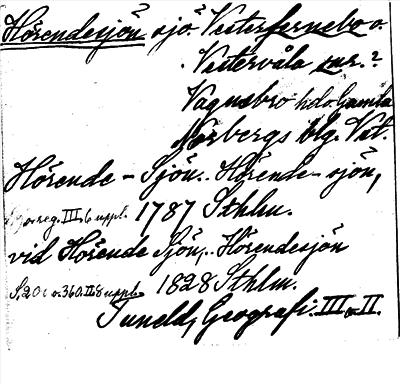 Hörendesjön sjö? Vesterfernebo o.
Vestervåla snr.?
Vagnsbro hd o. Gamla
Norbergs blg. Vstl.
Hörende - Sjön,. Hörende - sjön,
reg. III. 6 uppl. 1787 Sthlm.
vid Hörende Sjön,. Hörendesjön
S. 20 o. 360. II. 8 uppl. 1828 Sthlm.
Tuneld, Geografi. III o. II.